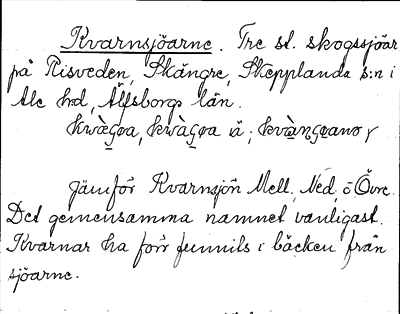 Kvarnsjöarne. Tre st. skogssjöar
på Risveden, Skängre, Skepplanda s:n i
Ale hd, Älfsborgs län.
jämför Kvarnsjön Mell, Ned, o Övre.
Det gemensamma namnet vanligast.
Kvarnar ha förr funnits i bäcken från
sjöarne.